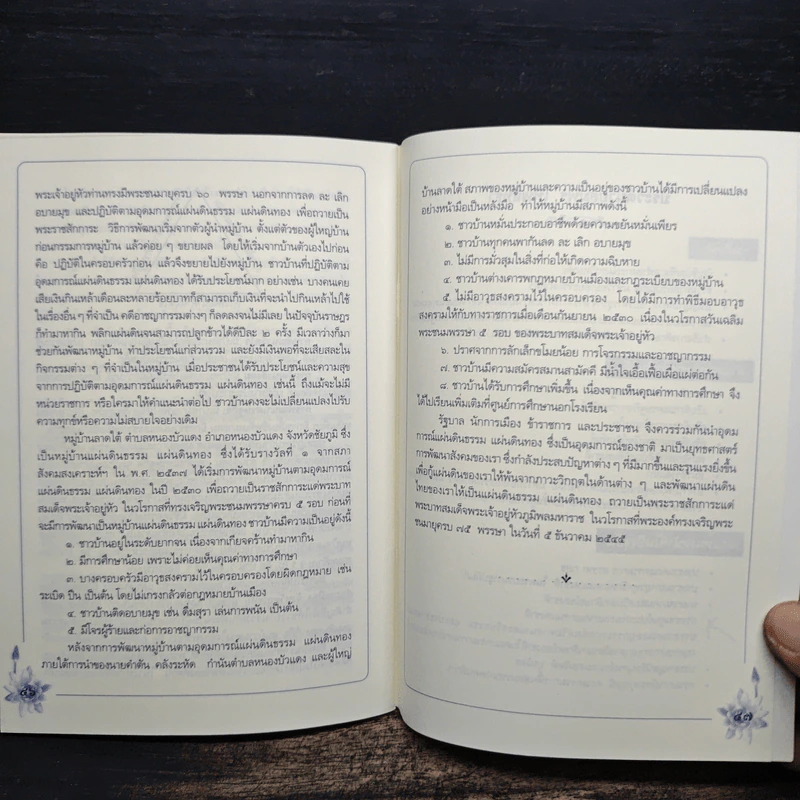 พระเจ้าอยู่หัวท่านทรงมีพระชนมายุครบ ๖๐ พรรษา นอกจากการลด ละ เลิก
อบายมุข และปฏิบัติตามอุดมการณ์แผ่นดินธรรม แผ่นดินทอง เพื่อถวายเป็น
พระราชสักการะ วิธีการพัฒนาเริ่มจากตัวผู้นำหมู่บ้าน ตั้งแต่ตัวของผู้ใหญ่บ้าน
ก่อนกรรมการหมู่บ้าน แล้วค่อย ๆ ขยายผล โดยให้เริ่มจากบ้านตัวเองไปก่อน
คือ ปฏิบัติในครอบครัวก่อน แล้วจึงขยายไปยังหมู่บ้าน ชาวบ้านที่ปฏิบัติตาม
อุดมการณ์แผ่นดินธรรม แผ่นดินทอง ได้รับประโยชน์มาก อย่างเช่น บางคนเคย
เสียเงินกินเหล้าเดือนละหลายร้อยบาทก็สามารถเก็บเงินที่จะนำไปกินเหล้าไปใช้
ในเรื่องอื่น ๆ ที่จำเป็น คดีอาชญากรรมต่างๆ ก็ลดลงจนไม่มีเลย ในปัจจุบันราษฎร
ก็ทำมาหากิน พลิกแผ่นดินจนสามารถปลูกข้าวได้ดีปีละ ๒ ครั้ง มีเวลาว่างก็มา
ช่วยกันพัฒนาหมู่บ้าน ทำประโยชน์แก่ส่วนรวม และยังมีเงินพอที่จะเสียสละใน
กิจกรรมต่าง ๆ ที่จำเป็นในหมู่บ้าน เมื่อประชาชนได้รับประโยชน์และความสุข
จากการปฏิบัติตามอุดมการณ์แผ่นดินธรรม แผ่นดินทอง เช่นนี้ ถึงแม้จะไม่มี
หน่วยราชการ หรือใครมาให้คำแนะนำต่อไป ชาวบ้านคงจะไม่เปลี่ยนแปลงไปรับ
ความทุกข์หรือความไม่สบายใจอย่างเดิม
หมู่บ้านลาดใต้ ตำบลหนองบัวแดง อำเภอหนองบัวแดง จังหวัดชัยภูมิ ซึ่ง
เป็นหมู่บ้านแผ่นดินธรรม แผ่นดินทอง ซึ่งได้รับรางวัลที่ ๑ จากสภา
สังคมสงเคราะห์ฯ ใน พ.ศ. ๒๕๓๗ ได้เริ่มการพัฒนาหมู่บ้านตามอุดมการณ์
แผ่นดินธรรม แผ่นดินทอง ในปี ๒๕๓๐ เพื่อถวายเป็นราชสักการะแด่พระบาท
สมเด็จพระเจ้าอยู่หัว ในวโรกาสที่ทรงเจริญพระชนมพรรษาครบ ๕ รอบ ก่อนที่
จะมีการพัฒนาเป็นหมู่บ้านแผ่นดินธรรม แผ่นดินทอง ชาวบ้านมีความเป็นอยู่ดังนี้
๑. ชาวบ้านอยู่ในระดับยากจน เนื่องจากเกียจคร้านทำมาหากิน
๒. มีการศึกษาน้อย เพราะไม่ค่อยเห็นคุณค่าทางการศึกษา
๓. บางครอบครัวมีอาวุธสงครามไว้ในครอบครองโดยผิดกฎหมาย เช่น
ระเบิด ปืน เป็นต้น โดยไม่เกรงกลัวต่อกฎหมายบ้านเมือง
๔. ชาวบ้านติดอบายมุข เช่น ดื่มสุรา เล่นการพนัน เป็นต้น
๕. มีโจรผู้ร้ายและก่อการอาชญากรรม
หลังจากการพัฒนาหมู่บ้านตามอุดมการณ์ แผ่นดินธรรม แผ่นดินทอง
ภายใต้การนำของนายคำตัน คลังระหัด กำนันตำบลหนองบัวแดง และผู้ใหญ่
๔๖
บ้านลาดใต้ สภาพของหมู่บ้านและความเป็นอยู่ของชาวบ้านได้มีการเปลี่ยนแปลง
อย่างหน้ามือเป็นหลังมือ ทำให้หมู่บ้านมีสภาพดังนี้
๑. ชาวบ้านหมั่นประกอบอาชีพด้วยความขยันหมั่นเพียร
๒. ชาวบ้านทุกคนพากันลด ละ เลิก อบายมุข
๓. ไม่มีการมั่วสุมในสิ่งที่ก่อให้เกิดความฉิบหาย
๔. ชาวบ้านต่างเคารพกฎหมายบ้านเมืองและกฎระเบียบของหมู่บ้าน
๕. ไม่มีอาวุธสงครามไว้ในครอบครอง โดยได้มีการทำพิธีมอบอาวุธ
สงครามให้กับทางราชการเมื่อเดือนกันยายน ๒๕๓๐ เนื่องในวโรกาสวันเฉลิม
พระชนมพรรษา ๕ รอบ ของพระบาทสมเด็จพระเจ้าอยู่หัว
๖. ปราศจากการลักเล็กขโมยน้อย การโจรกรรมและอาชญากรรม
๗. ชาวบ้านมีความสมัครสมานสามัคคี มีน้ำใจเอื้อเฟื้อเผื่อแผ่ต่อกัน
๘. ชาวบ้านได้รับการศึกษาเพิ่มขึ้น เนื่องจากเห็นคุณค่าทางการศึกษา จึง
ได้ไปเรียนเพิ่มเติมที่ศูนย์การศึกษานอกโรงเรียน
รัฐบาล นักการเมือง ข้าราชการ และประชาชน จึงควรร่วมกันนำอุดม
การณ์แผ่นดินธรรม แผ่นดินทอง ซึ่งเป็นอุดมการณ์ของชาติ มาเป็นยุทธศาสตร์
การพัฒนาสังคมของเรา ซึ่งกำลังประสบปัญหาต่าง ๆ ที่มีมากขึ้นและรุนแรงยิ่งขึ้น
เพื่อกู้แผ่นดินของเราให้พ้นจากภาวะวิกฤตในด้านต่าง ๆ และพัฒนาแผ่นดิน
ไทยของเราให้เป็นแผ่นดินธรรม แผ่นดินทอง ถวายเป็นพระราชสักการะแด่
พระบาทสมเด็จพระเจ้าอยู่หัวภูมิพลมหาราช ในวโรกาสที่พระองค์ทรงเจริญพระ
ชนมายุครบ ๗๕ พรรษา ในวันที่ ๕ ธันวาคม ๒๕๔๕
๔๗